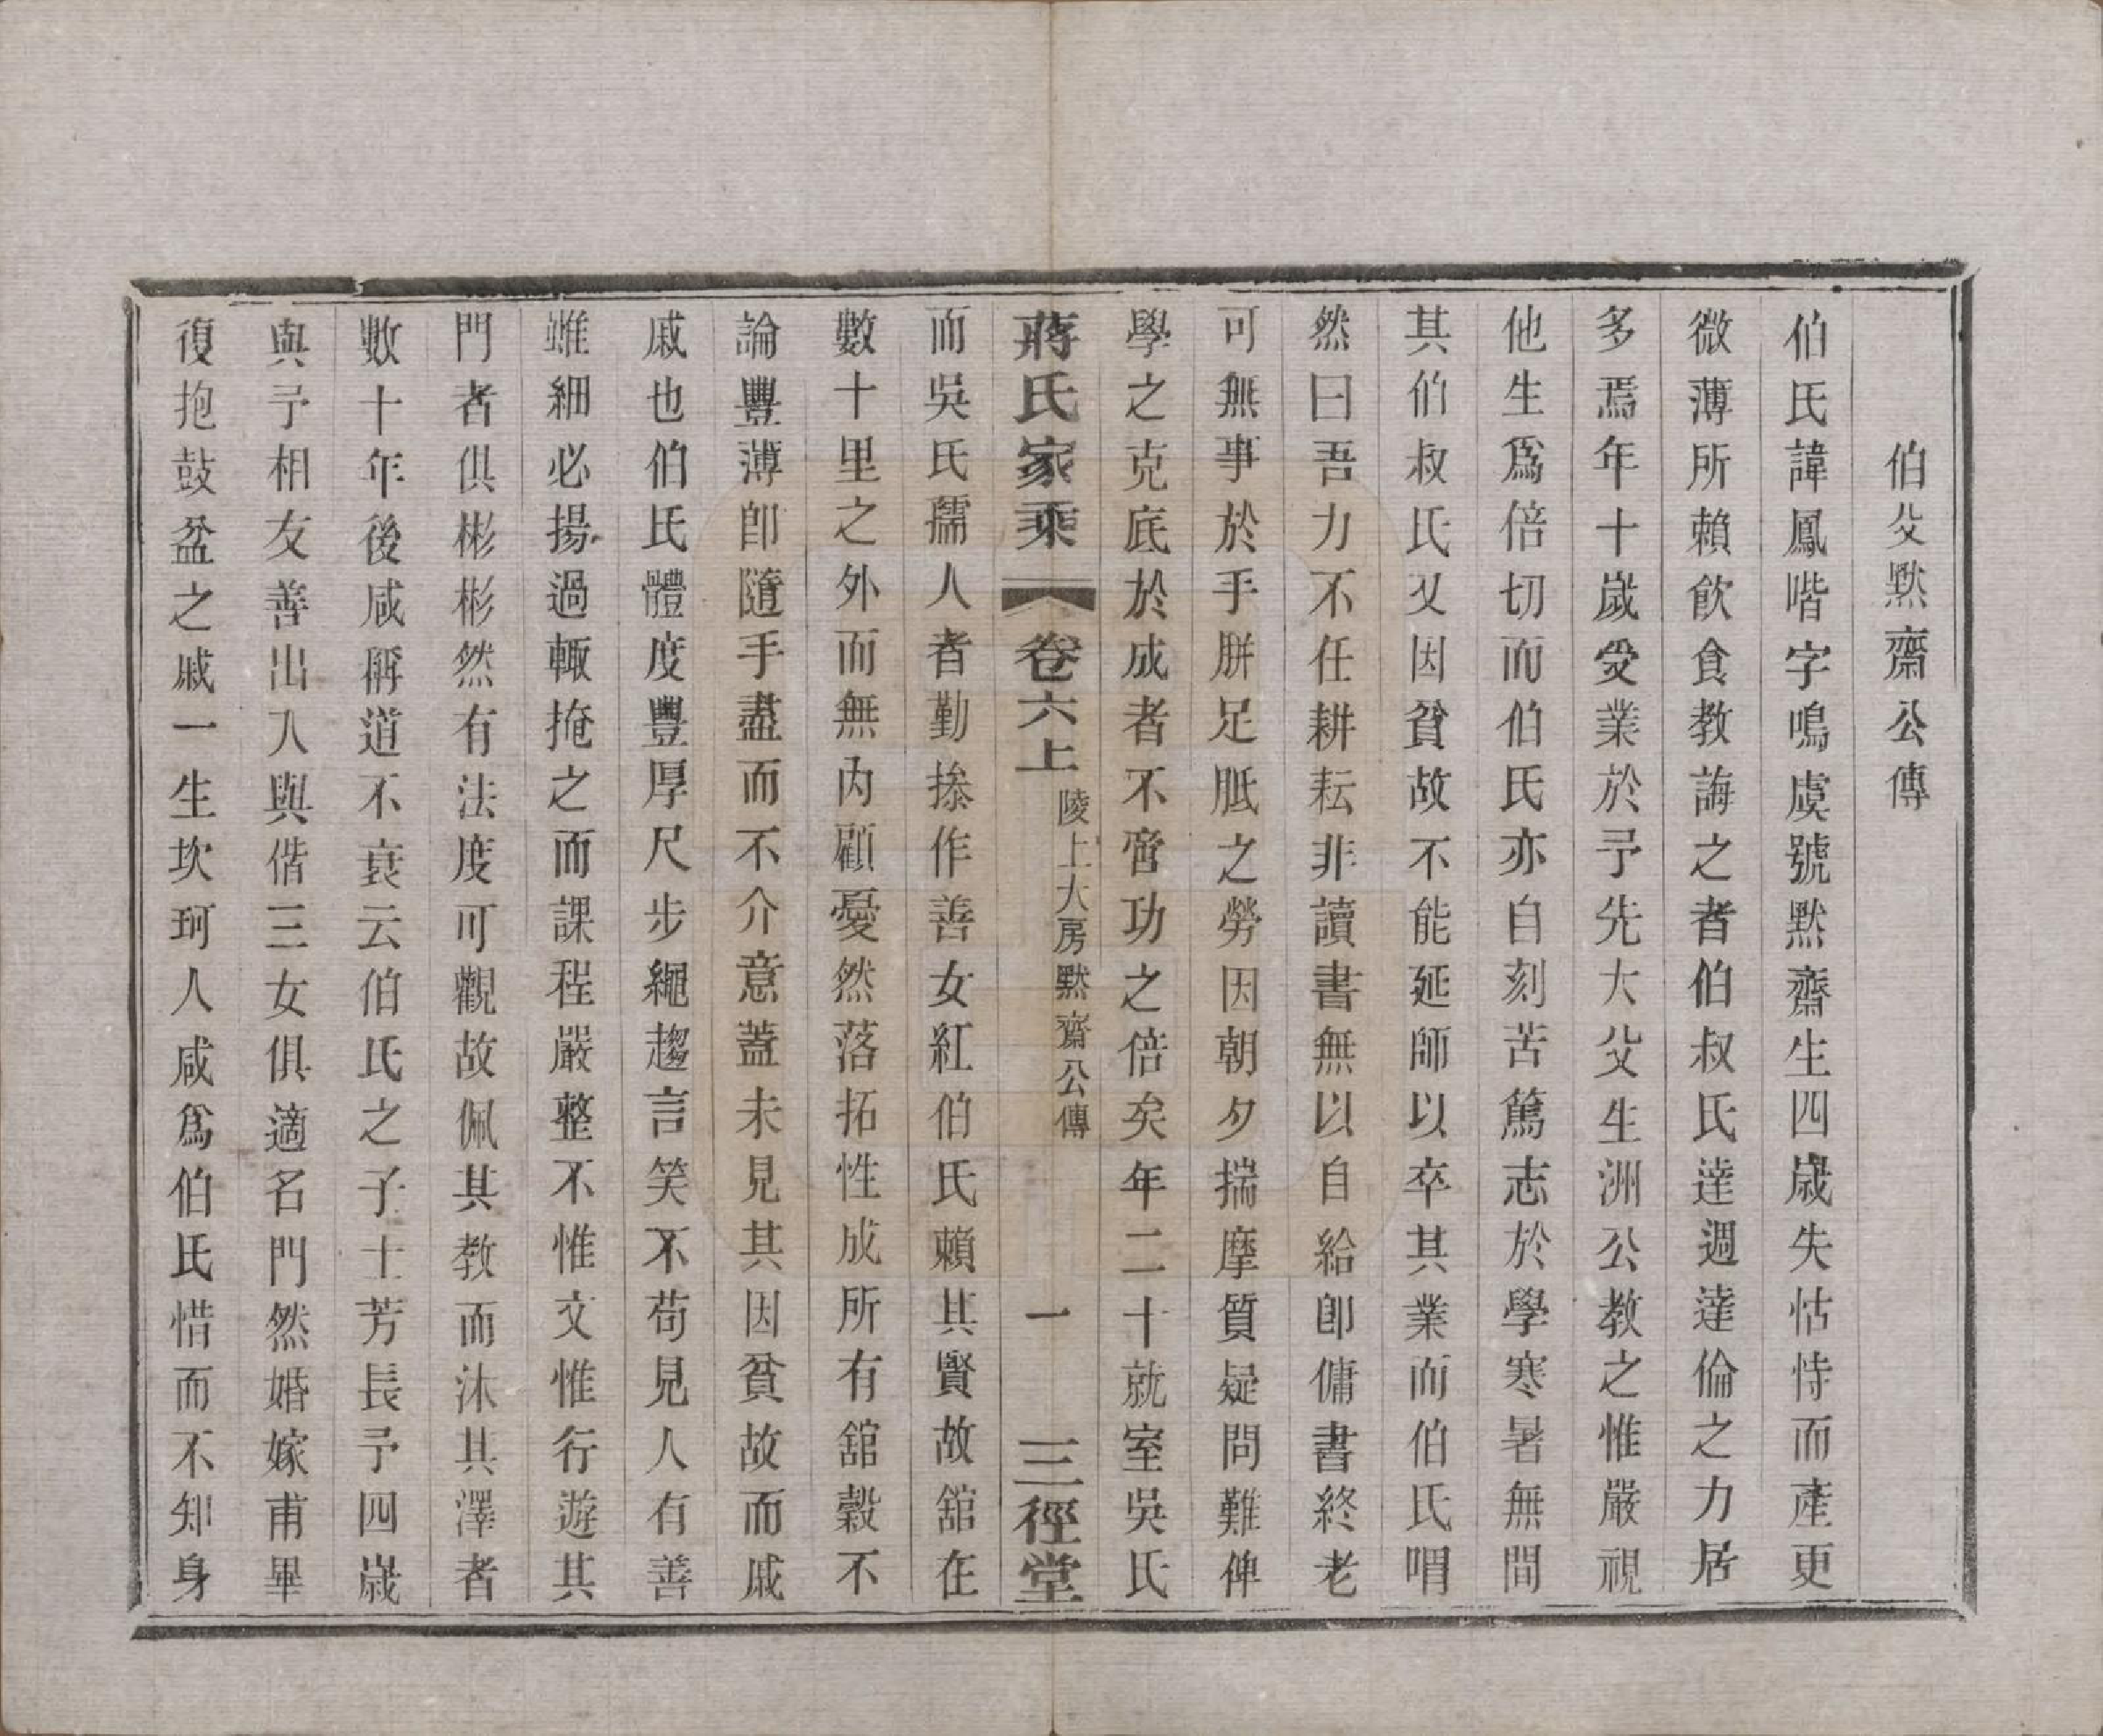 伯父默齋公傳
伯氏諱鳳喈字鳴虞號默齋生四歲失怙恃而產更
微薄所賴飲食教誨之者伯叔氏達週達倫之力居
多焉年十歲受業於予先大父生洲公教之惟嚴視
他生爲倍切而伯氏亦自刻苦篤志於學寒暑無間
其伯叔氏又因貧故不能延師以卒其業而伯氏喟
然曰吾力不任耕耘非讀書無以自給卽傭書終老
可無事於手胼足胝之勞因朝夕揣摩質疑問難俾
學之克底於成者不啻功之倍矣年二十就室吳氏
蔣氏家乘 卷六上 陵上大房默齋公傳 一 三徑堂
而吳氏孺人者勤操作善女紅伯氏賴其賢故舘在
數十里之外而無內顧憂然落拓性成所有舘穀不
論豐薄卽隨手盡而不介意蓋未見其因貧故而戚
戚也伯氏體度豐厚尺步繩趨言笑不苟見人有善
雖細必揚過輒掩之而課程嚴整不惟文惟行遊其
門者俱彬彬然有法度可觀故佩其教而沐其澤者
數十年後咸稱道不衰云伯氏之子士芳長予四歲
與予相友善出入與偕三女俱適名門然婚嫁甫畢
復抱鼓盆之戚一生坎坷人咸爲伯氏惜而不知身